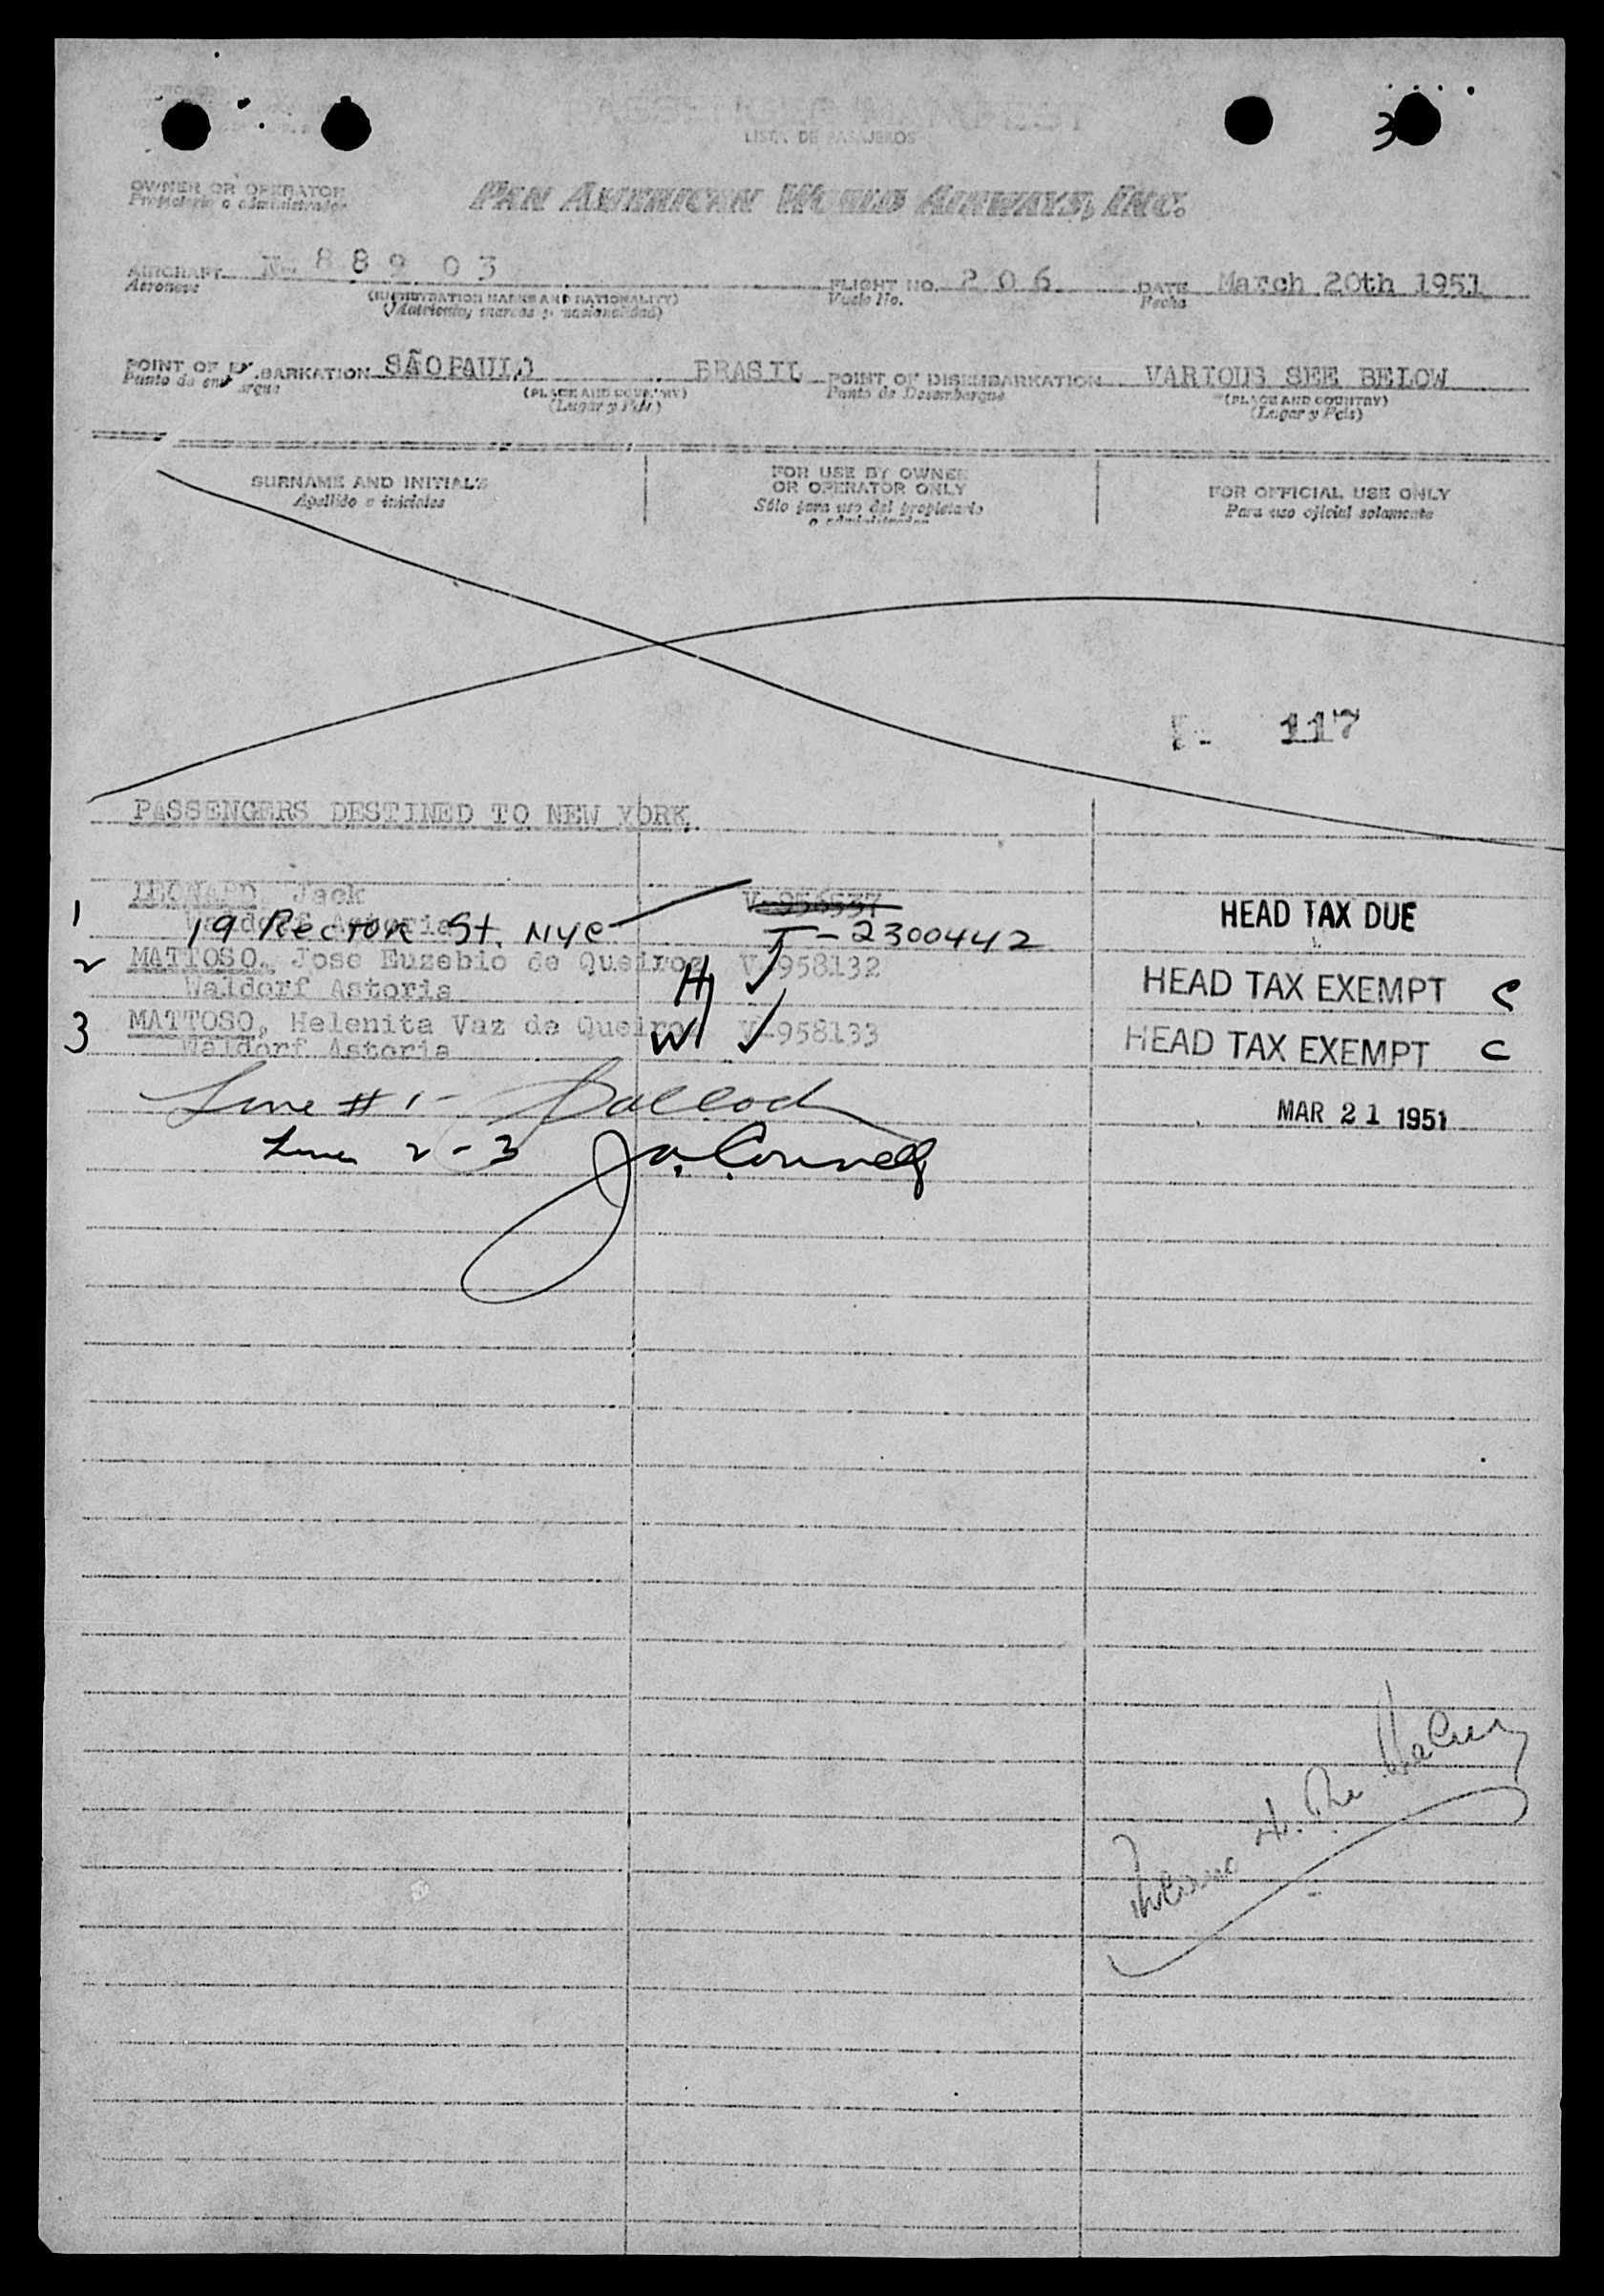 3
PASSENGER MANIFEST
LISTA DE PASAJEROS
OWNER OR OPERATOR
Propietario o administrador
PAN AMERICAN WORLD AIRWAYS, INC.
AIRCRAFT N- 8 8 9 0 3 FLIGHT NO. 2 0 6 DATE March 20th 1951
Aeronave (REGISTRATION MARKS AND NATIONALITY) Vuelo No. Fecha
(Matricula, marcas y nacionalidad)
POINT OF EMBARKATION SÃO PAULO BRASIL POINT OF DISEMBARKATION VARIOUS SEE BELOW
Punto de embarque (PLACE AND COUNTRY) Punto de Desembarque (PLACE AND COUNTRY)
(Lugar y País) (Lugar y País)
SURNAME AND INITIALS FOR USE BY OWNER OR OPERATOR ONLY FOR OFFICIAL USE ONLY
Apellido e iniciales Sólo para uso del propietario o administrador Para uso oficial solamente
117
PASSENGERS DESTINED TO NEW YORK.
1 LEONARD, Jack V-956537 HEAD TAX DUE
Waldorf Astoria
19 Rector St. NYC T-2300442
2 MATTOSO, Jose Euzebio de Queiroz H V-958132 HEAD TAX EXEMPT C
Waldorf Astoria
3 MATTOSO, Helenita Vaz de Queiroz W V-958133 HEAD TAX EXEMPT C
Waldorf Astoria
Line # 1-
MAR 21 1951
Line 2-3